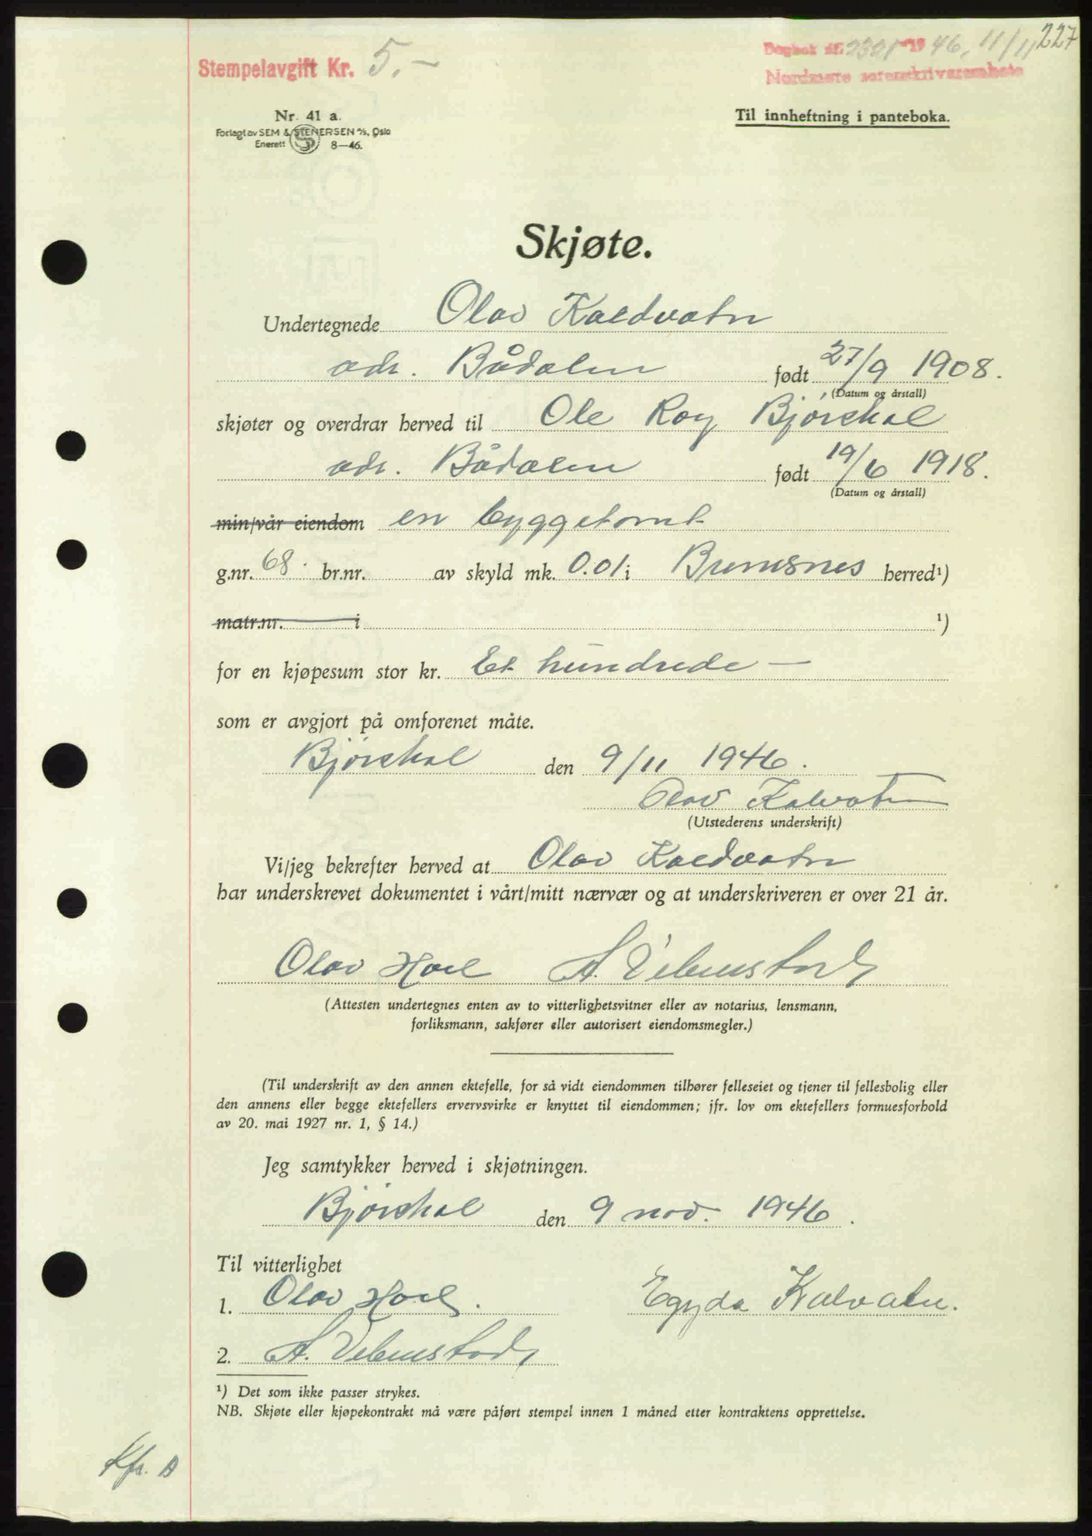 227
Stempelavgift Kr. 5.-
Dagbok nr. 2321 19 46, 11/11
Nordmøre sorenskriverembete
Nr. 41 a.
Forlagt av SEM & STENERSEN A/S, Oslo
Enerett 8—46.
Til innheftning i panteboka.
Skjøte.
Undertegnede Olav Kaldvatn
adr. Bådalen født 27/9 1908.
(Datum og årstall)
skjøter og overdrar herved til Ole Roy Bjørshol
adr. Bådalen født 19/6 1918.
(Datum og årstall)
min/vår eiendom en byggetomt
g.nr. 68. br.nr. av skyld mk. 0.01 i Bremsnes herred¹)
matr.nr. i ¹)
for en kjøpesum stor kr. Et hundrede —
som er avgjort på omforenet måte.
Bjørshol den 9/11 1946.
Olav Kalvatn
(Utstederens underskrift)
Vi/jeg bekrefter herved at Olav Kaldvatn
har underskrevet dokumentet i vårt/mitt nærvær og at underskriveren er over 21 år.
Olav Hoel A.
(Attesten undertegnes enten av to vitterlighetsvitner eller av notarius, lensmann,
forliksmann, sakfører eller autorisert eiendomsmegler.)
(Til underskrift av den annen ektefelle, for så vidt eiendommen tilhører felleseiet og tjener til fellesbolig eller
den annens eller begge ektefellers ervervsvirke er knyttet til eiendommen; jfr. lov om ektefellers formuesforhold
av 20. mai 1927 nr. 1, § 14.)
Jeg samtykker herved i skjøtningen.
Bjørshol den 9 nov. 1946.
Til vitterlighet
1. Olav Hoel. Egyda Kalvatn.
2. A.
¹) Det som ikke passer strykes.
NB. Skjøte eller kjøpekontrakt må være påført stempel innen 1 måned etter kontraktens opprettelse.
Kfr. B